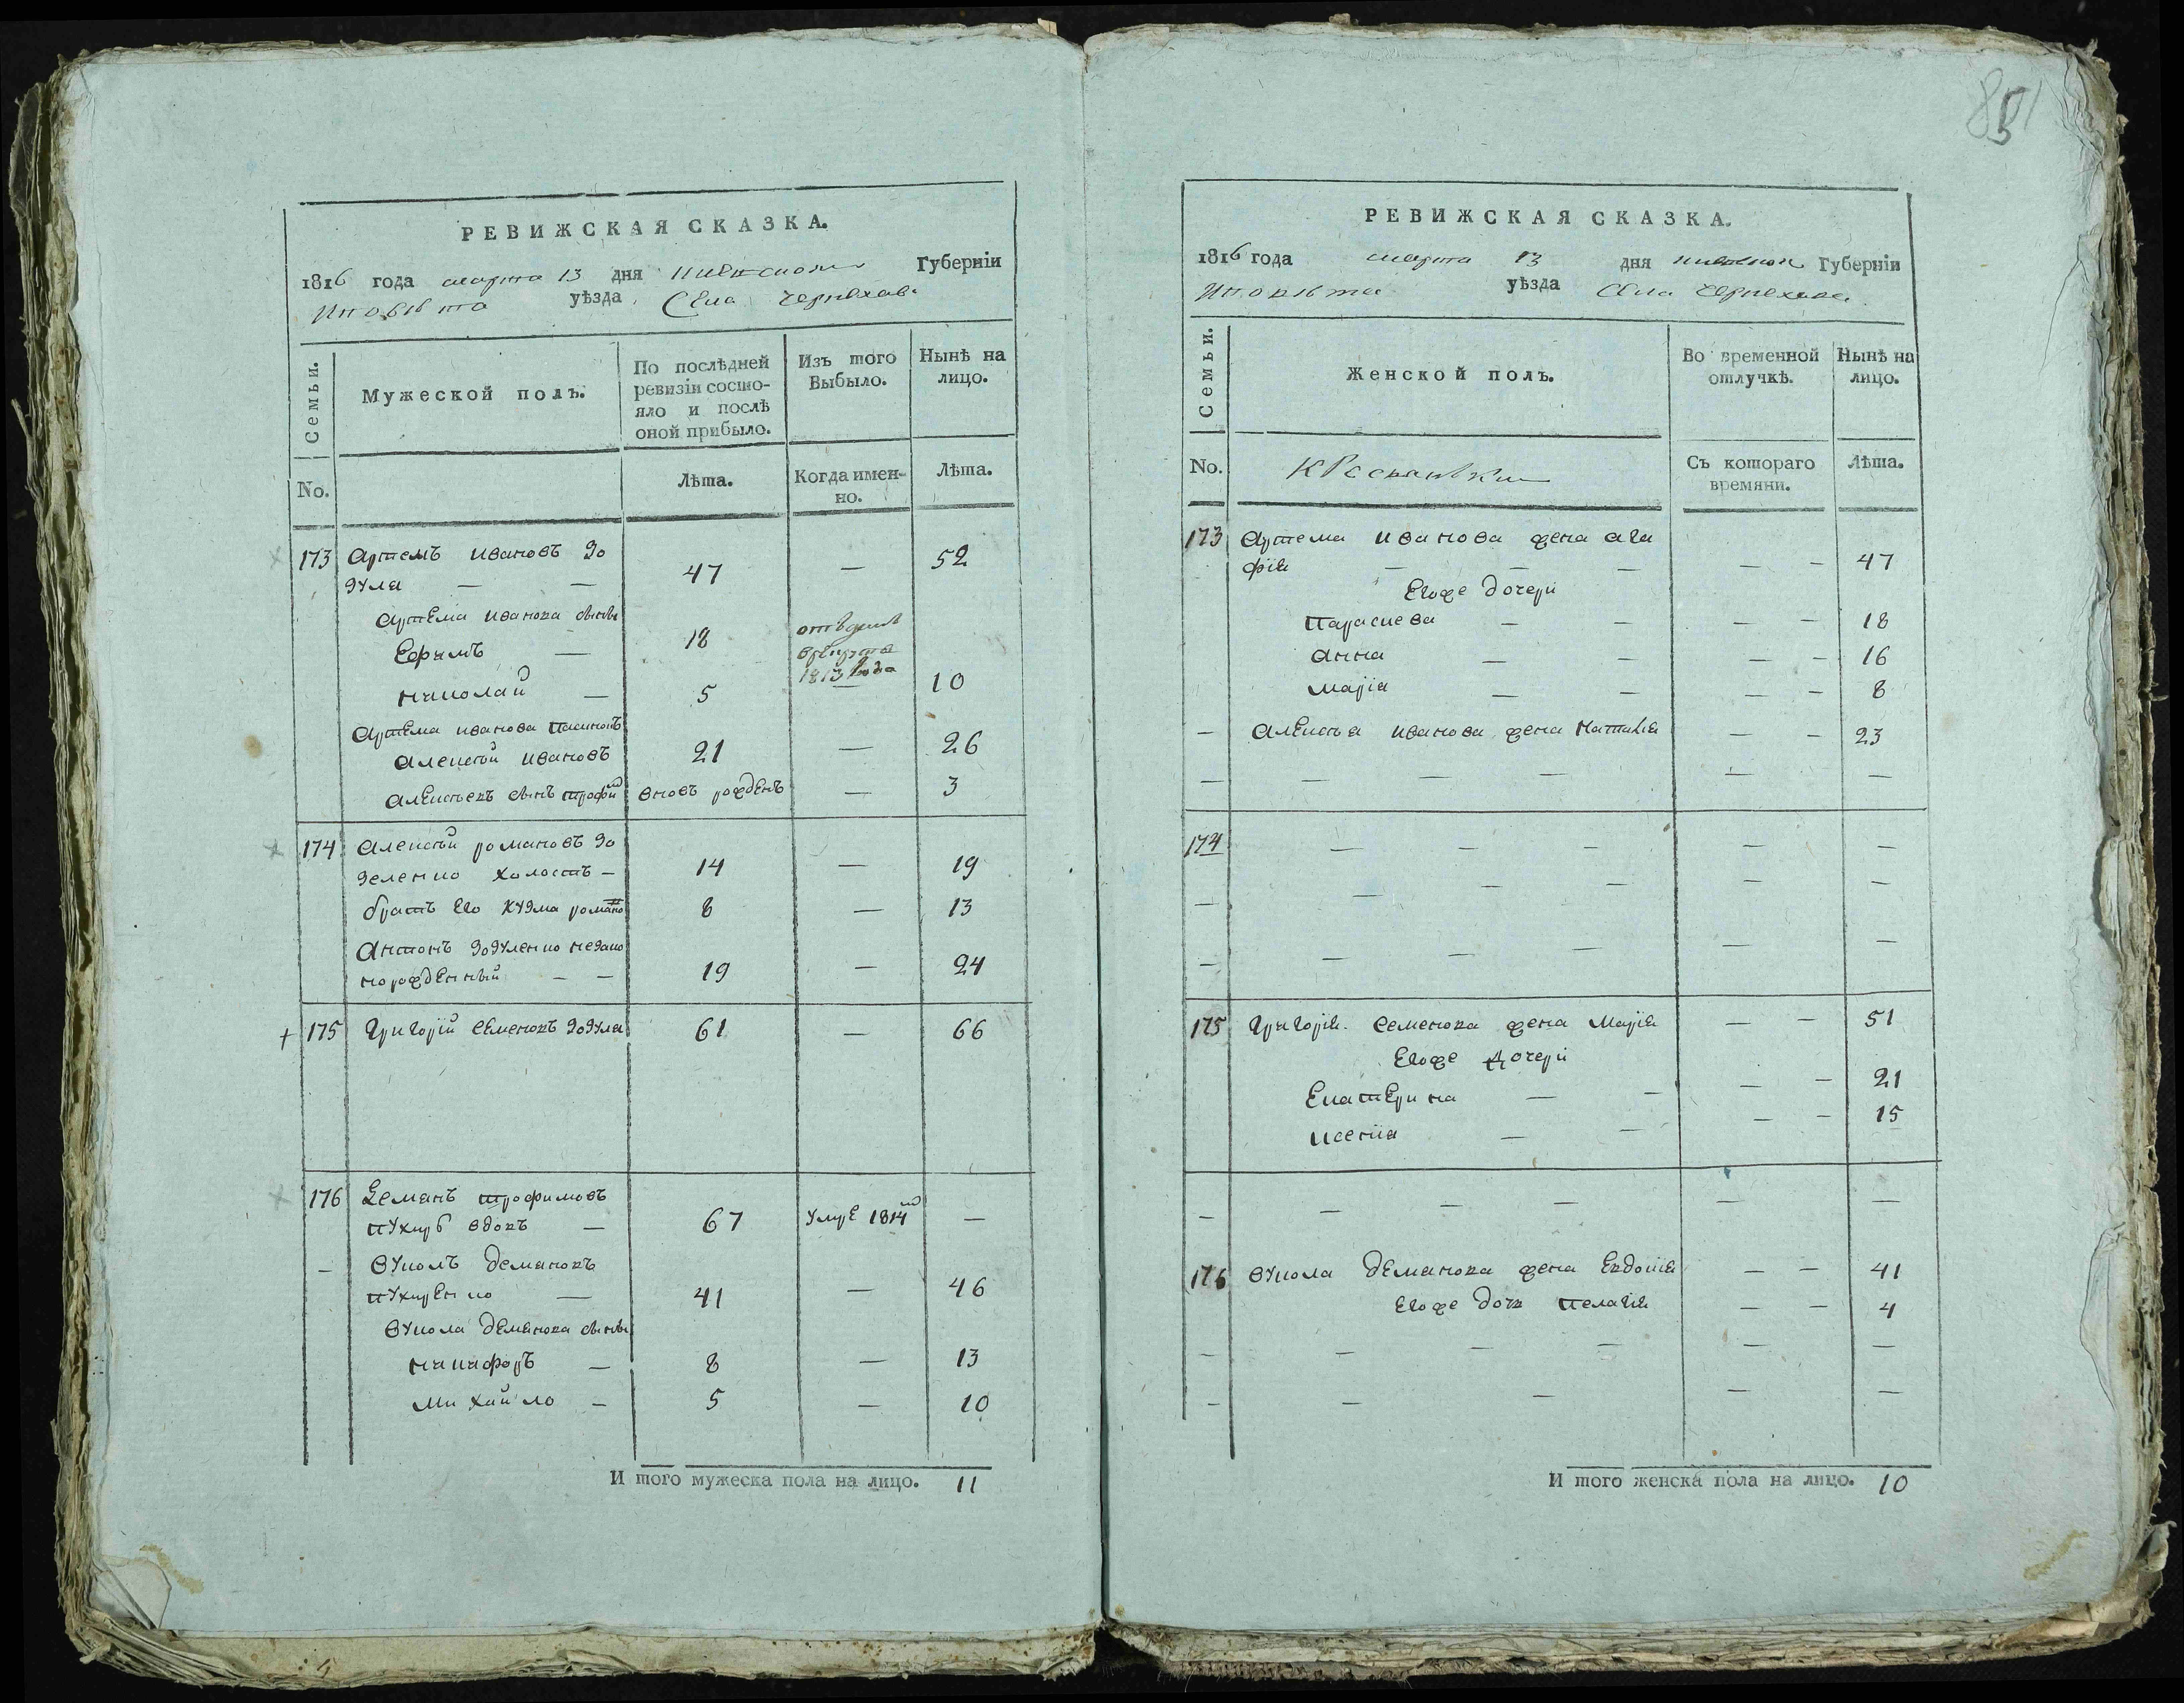 851
РЕВИЖСКАЯ СКАЗКА.
1816 года марта 13 дня Киевской Губерніи
уѣзда Села Черняхова
Семьи.
Мужеской полъ.
По послѣдней
ревизіи состо-
яло и послѣ
оной прибыло.
Изъ того
Выбыло.
Нынѣ на
лицо.
No.
Лѣта.
Когда имен-
но.
Лѣта.
173 Артемъ Ивановъ Зо
зуля — — 47 — 52
Артема Иванова сынъ
Ефимъ — 18 отъданъ
в рекрута
1813 года
Николай — 5 — 10
Артема Иванова
Алексѣй Ивановъ 21 — 26
Алексѣевъ сынъ Трофим вновь рожденъ — 3
174 Алексѣй Романовъ Зо
зеленко холостъ — 14 — 19
братъ его Кузма Романо 8 — 13
Антонъ Зозуленко незако
норожденный — — 19 — 24
175 Григорій Семеновъ Зозуля 61 — 66
176 Демянъ Трофимовъ
Пухир вдовъ — 67 умре 1814 —
— Вуколъ Демяновъ
Пухиренко — 41 — 46
Вукола Демянова сыны
Никифоръ — 8 — 13
Михайло — 5 — 10
И того мужеска пола на лицо. 11
РЕВИЖСКАЯ СКАЗКА.
1816 года марта 13 дня Киевской Губерніи
уѣзда Села Черняхова
Семьи.
Женской полъ.
Во временной
отлучкѣ.
Нынѣ на
лицо.
No.
Съ котораго
времяни.
Лѣта.
173 Артема Иванова жена Ага
фія — — — — — 47
Егоже дочери
Параскева — — — — 18
Анна — — — — 16
Марія — — — — 8
— Алексѣя Иванова жена Наталія — — 23
— — — — — —
174 — — — — —
— — — — — —
— — — — — —
175 Григорія Семенова жена Марія — — 51
Егоже дочери
Екатерина — — — — 21
Ксенія — — — — 15
— — — — — —
176 Вукола Демянова жена Евдокія — — 41
Егоже дочь Пелагія — — 4
— — — — — —
— — — — —
И того женска пола на лицо. 10